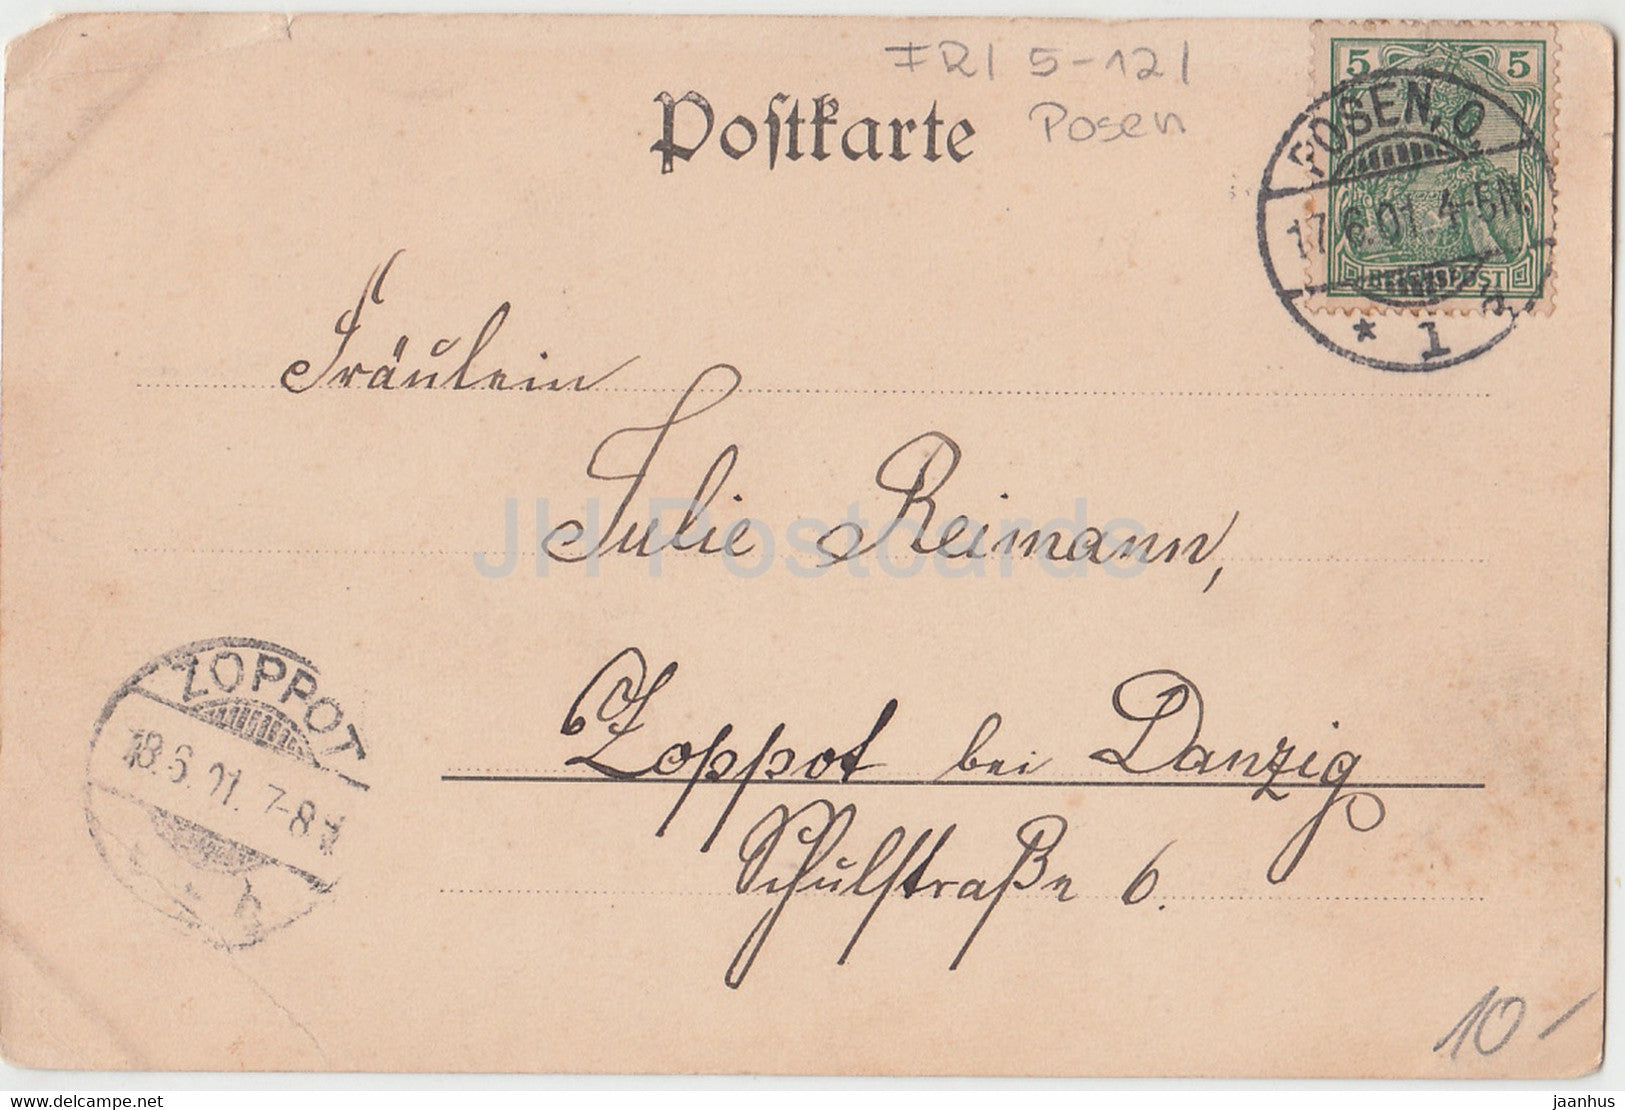 FRI 5-121
Posen
Postkarte
5 5
POSEN. O.
17.6.01. 4-5N.
REICHSPOST
* 1 a.
Fräulein
Julie Reimann,
Zoppot bei Danzig
Schulstraße 6.
ZOPPOT
18.6.01. 7-8V.
10-
JH Postcards
www.delcampe.net
jaanhus